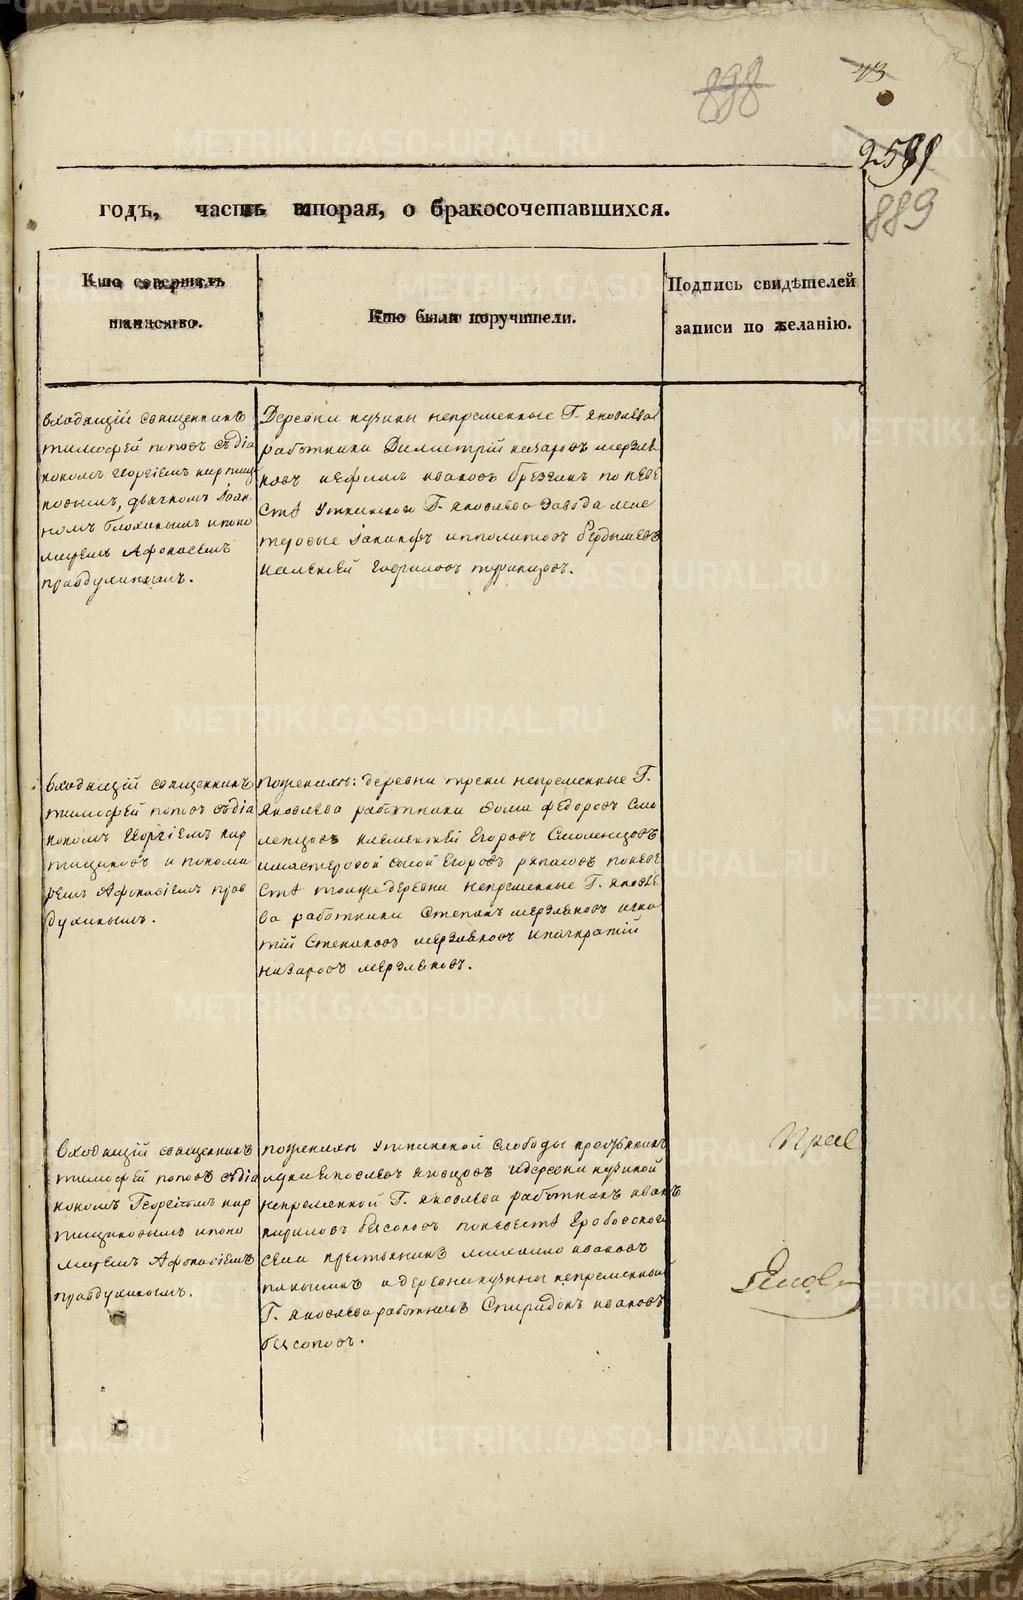 898
43
2591
889
годъ, часть вторая, о бракосочетавшихся.
Кто совершалъ
таинство.
Кто были поручители.
Подпись свидѣтелей
записи по желанію.
входящій священникъ
тимофей поповъ съ діа
кономъ Георгіемъ кир пищи
ковымъ, дьячкомъ Іоан
номъ Блохинымъ и поно
маремъ Афонасіемъ
правдухинымъ.
Деревни кузины непременные Г. яковлева
работники Димитрій назаровъ мерзля
ковъ иефимъ ивановъ брезгинъ по неве
стѣ уткинского Г. яковлева завода мас
теровые Іакинфъ ипполитовъ бердышевъ
иалексей гавриловъ
входящій священникъ
тимофей поповъ съ діа
кономъ Георгіемъ кир
пищиковъ и понома
ремъ Афонасіемъ прав
духинымъ.
поженихѣ: деревни треки непременные Г.
яковлева работники фома федоровъ смо
ленцовъ климентей Егоровъ Смоленцовъ
имастеровой сысой Егоровъ поневе
стѣ тоижедеревни непременные Г. яковле
ва работники Степанъ мерзляковъ игна
тій Степановъ мерзляковъ ипанкратій
назаровъ мерзляковъ.
входящій священникъ
тимофей поповъ съ діа
кономъ Георгіемъ кир
пищиковымъ ипоно
маремъ Афонасіемъ
правдухинымъ.
поженихѣ уткинской слободы крестьянинъ
идеревни кузиной
непременной Г. яковлева работникъ иванъ
кириловъ бесоновъ поневестѣ Гробовского
села крестьянинъ михаило ивановъ
идеревни кузины непременной
Г. яковлева работникъ Спиридонъ ивановъ
бесоновъ.
METRIKI.GASO-URAL.RU